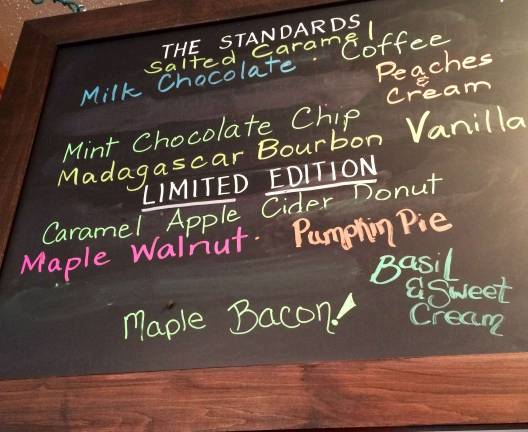 THE STANDARDS
Salted Caramel
Milk Chocolate · Coffee
Peaches
&
Cream
Mint Chocolate Chip
Madagascar Bourbon Vanilla
LIMITED EDITION
Caramel Apple Cider Donut
Maple Walnut · Pumpkin Pie
Basil
& Sweet
Cream
Maple Bacon!